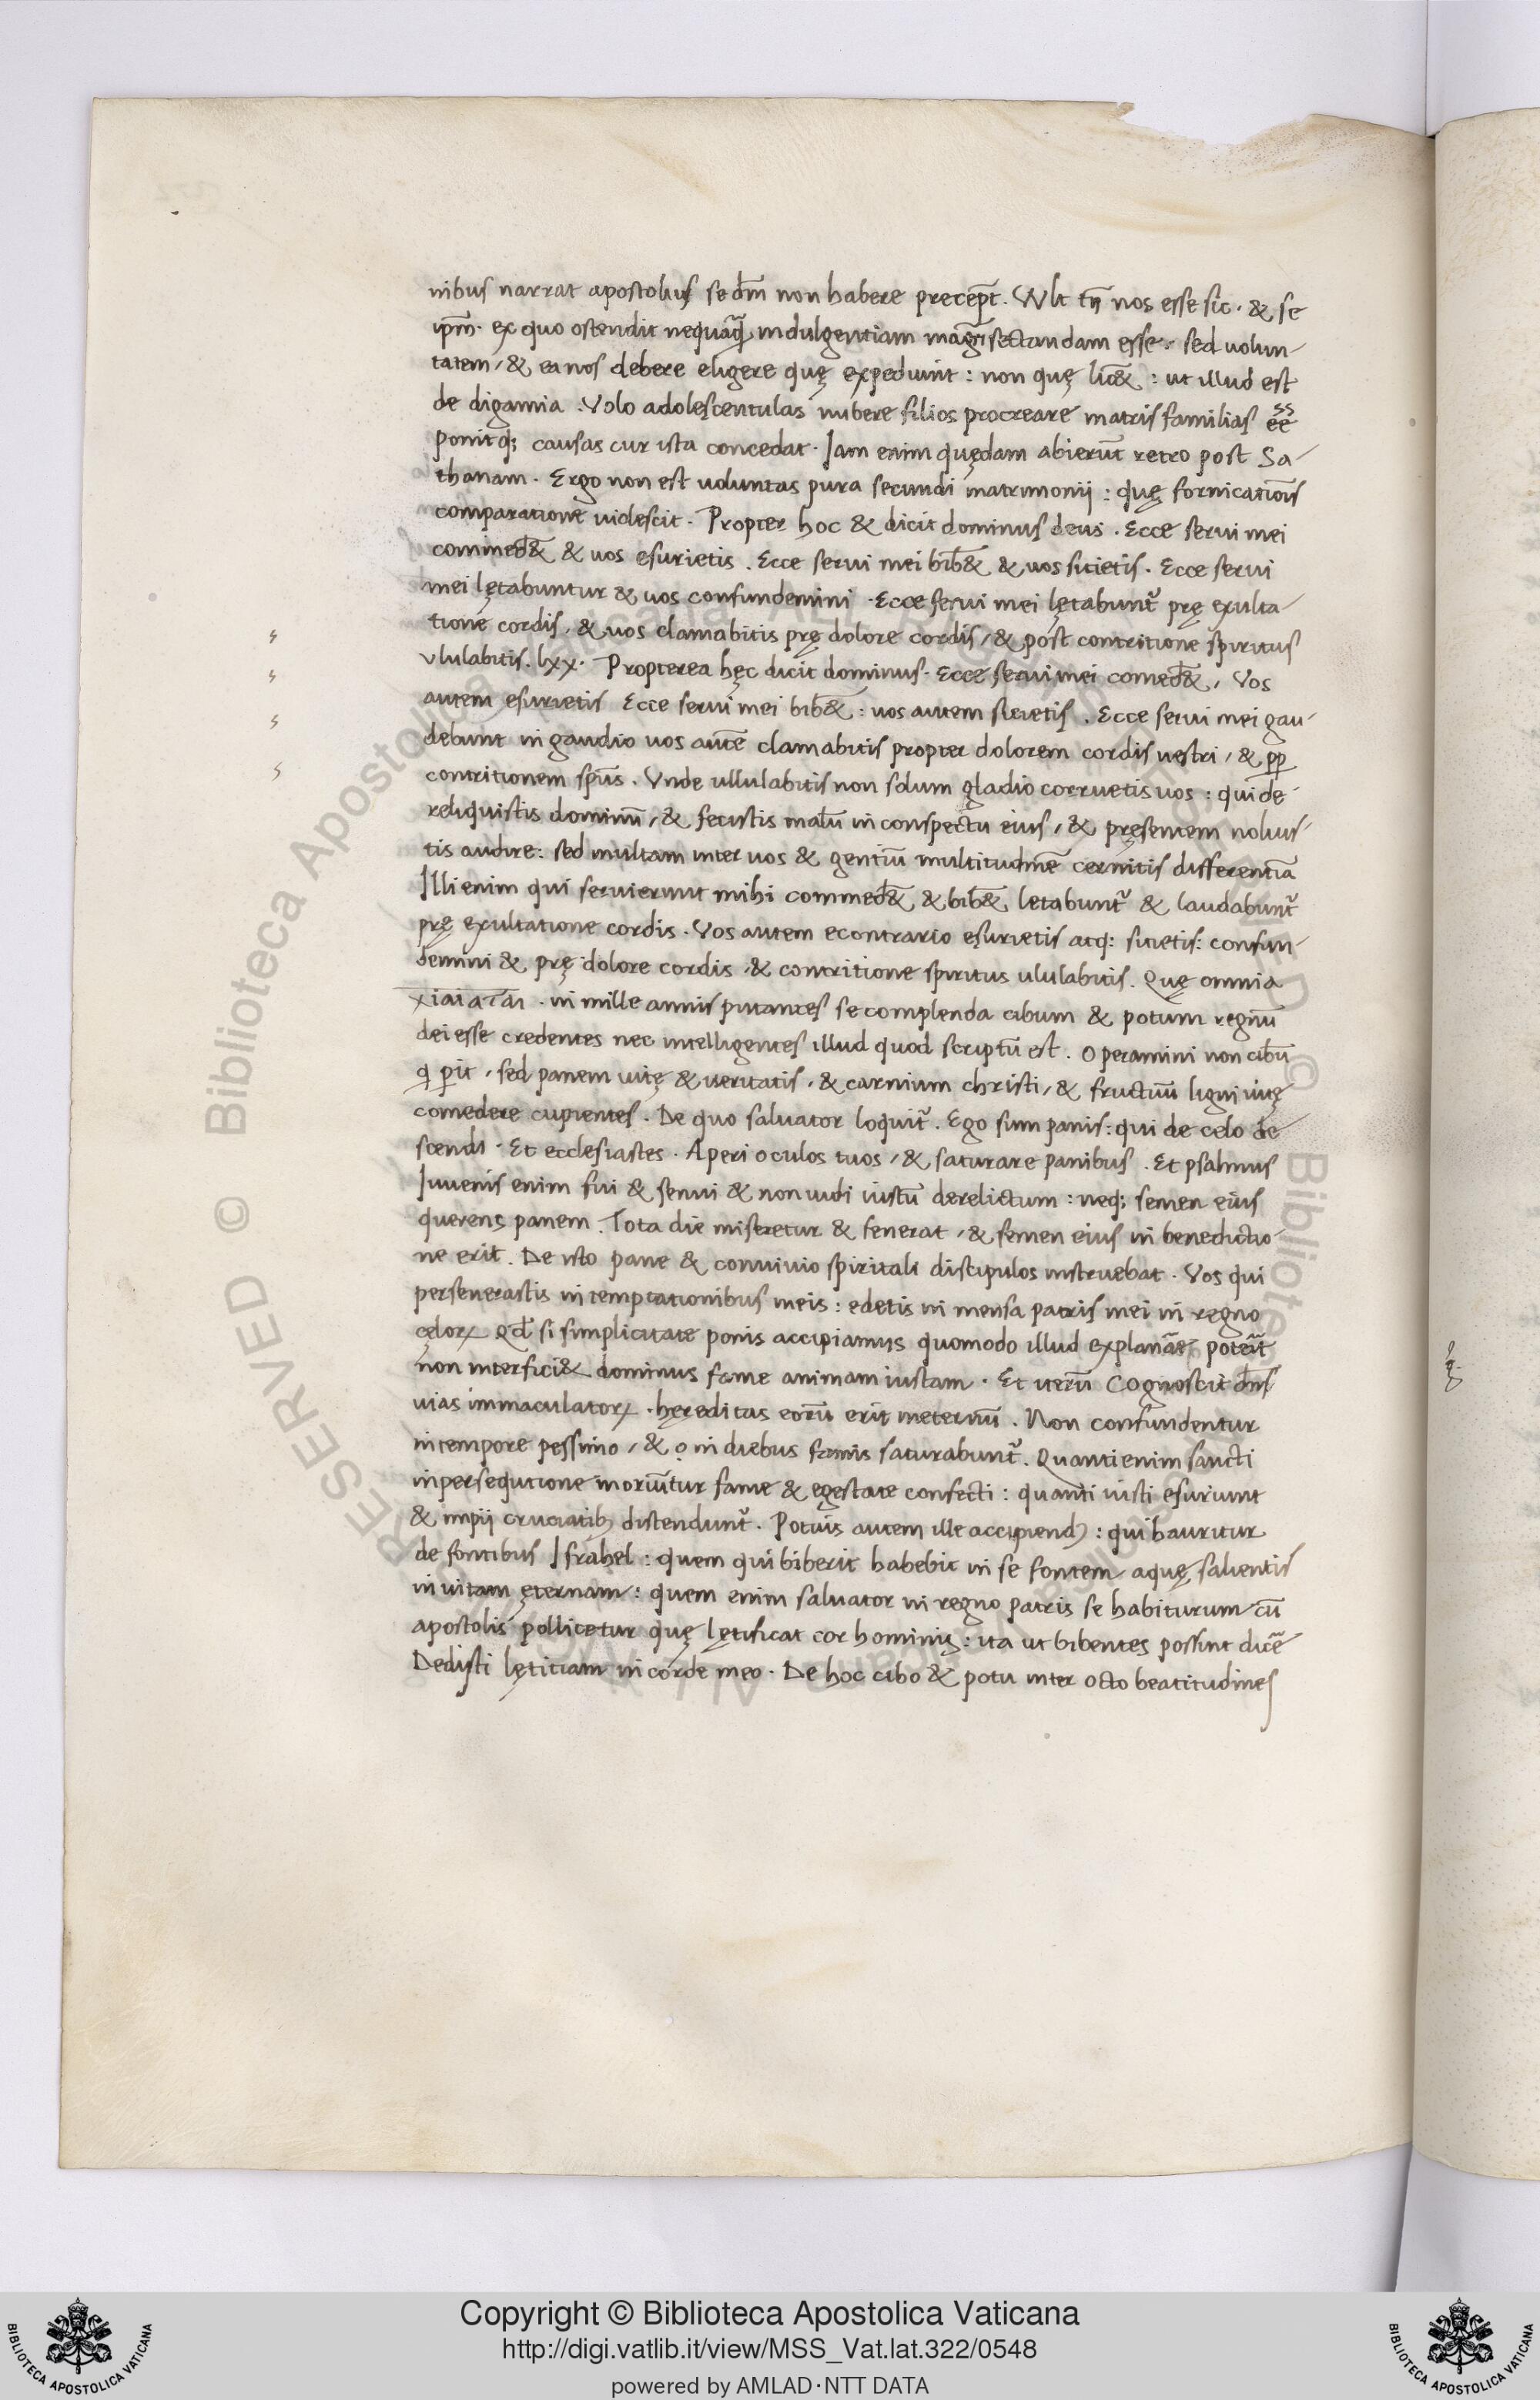 nibus narrat apostolus se dm̄ non habere precept̄. Vult tn̄ nos esse sic. & se
ipm̄. ex quo ostendit nequaq̄ indulgentiam magis sectandam esse, sed volun-
tatem, & ea nos debere eligere quę expediunt : non quę lic& : ut illud est
de digamia. Volo adolescentulas nubere filios procreare matris familias ēē
ponitq; causas cur ista concedat. Iam enim quędam abierūt retro post Sa-
thanam. Ergo non est voluntas pura secundi matrimonii : quę fornicatiōis
comparatione videscit. Propter hoc & dicit dominus deus. Ecce servi mei
commed& & uos esurietis. Ecce servi mei bib& & uos sitietis. Ecce servi
mei lętabuntur & uos confundemini. Ecce servi mei lętabunt̄ prę exulta-
tione cordis, & uos clamabitis prę dolore cordis, & post contritione spiritus
ululabitis. lxx. Propterea hęc dicit dominus. Ecce servi mei comed&, Vos
autem esurietis Ecce servi mei bib& : uos autem sitietis. Ecce servi mei gau-
debunt in gaudio uos autē clamabitis propter dolorem cordis vestri, & pp
contritionem spūs. Vnde ullulabitis non solum gladio corruetis uos : qui de-
reliquistis dominū, & fecistis malū in conspectu eius, & pręsentem noluis-
tis audire: sed multam inter uos & gentiū multitudinē cernitis differentiā
Illi enim qui servierunt mihi commed& & bib& letabunt̄ & laudabunt̄
prę exultatione cordis. Vos autem econtrario esurietis atq: sitietis: confun-
demini & prę dolore cordis, & contritione spiritus ululabitis. Quę omnia
χιαιαται. in mille annis putantes se complenda cibum & potum regnū
dei esse credentes nec intelligentes illud quod scriptū est. Operamini non cibū
q̇ perit, sed panem vitę & veritatis, & carnium christi, & fructuū ligni vitę
comedere cupientes. De quo salvator loquit̄. Ego sum panis: qui de celo de
scendi. Et ecclesiastes. Aperi oculos tuos, & saturare panibus. Et psalmus
Iuvenis enim fui & senui & non vidi iustū derelictum : neq; semen eius
querens panem. Tota die miseretur & fenerat, & semen eius in benedictio-
ne erit. De isto pane & convivio spiritali discipulos instruebat. Vos qui
perseverastis in temptationibus meis : edetis in mensa patris mei in regno
cęlorꝝ qd̄ si simplicitate ponis accipiamus quomodo illud explanāe poterāt
non interfici& dominus fame animam iustam. Et iterū Cognoscit dn̄s
vias immaculatorꝝ. hęreditas eorū erit ineternū. Non confundentur
in tempore pessimo, & ǫ in diebus famis saturabunt̄. Quanti enim sancti
in persequtione moriūtur fame & egestate confecti : quanti iusti esuriunt
& impii cruciatib; distendunt̄. Potuis autem ille accipiend; : qui hauritur
de fontibus Israhel : quem qui biberit habebit in se fontem aquę salientis
in vitam ęternam : quem enim salvator in regno patris se habiturum cū
apostolis pollicetur quę lętificat cor hominis : ita ut bibentes possint dicē
Dedisti lętitiam in corde meo. De hoc cibo & potu inter octo beatitudines
RESERVED © Biblioteca Apostolica
© Biblioteca
Copyright © Biblioteca Apostolica Vaticana
http://digi.vatlib.it/view/MSS_Vat.lat.322/0548
powered by AMLAD·NTT DATA
BIBLIOTECA APOSTOLICA VATICANA
BIBLIOTECA APOSTOLICA VATICANA